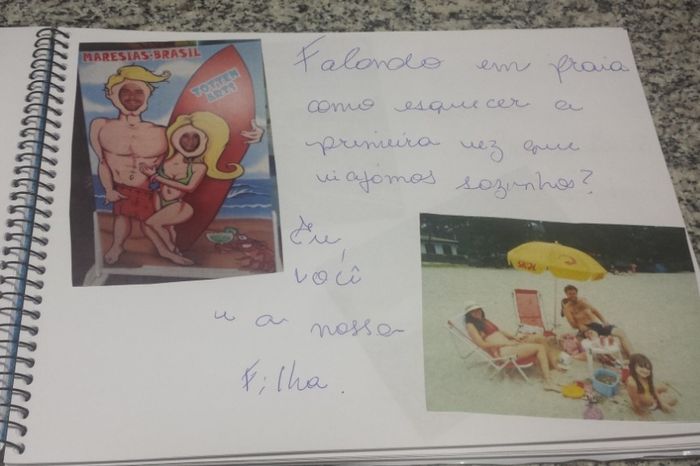 MARESIAS-BRASIL
TOTTEM
ART'S
Falando em praia
como esquecer a
primeira vez que
viajamos sozinhos?
Eu,
você
e a nossa
Filha.